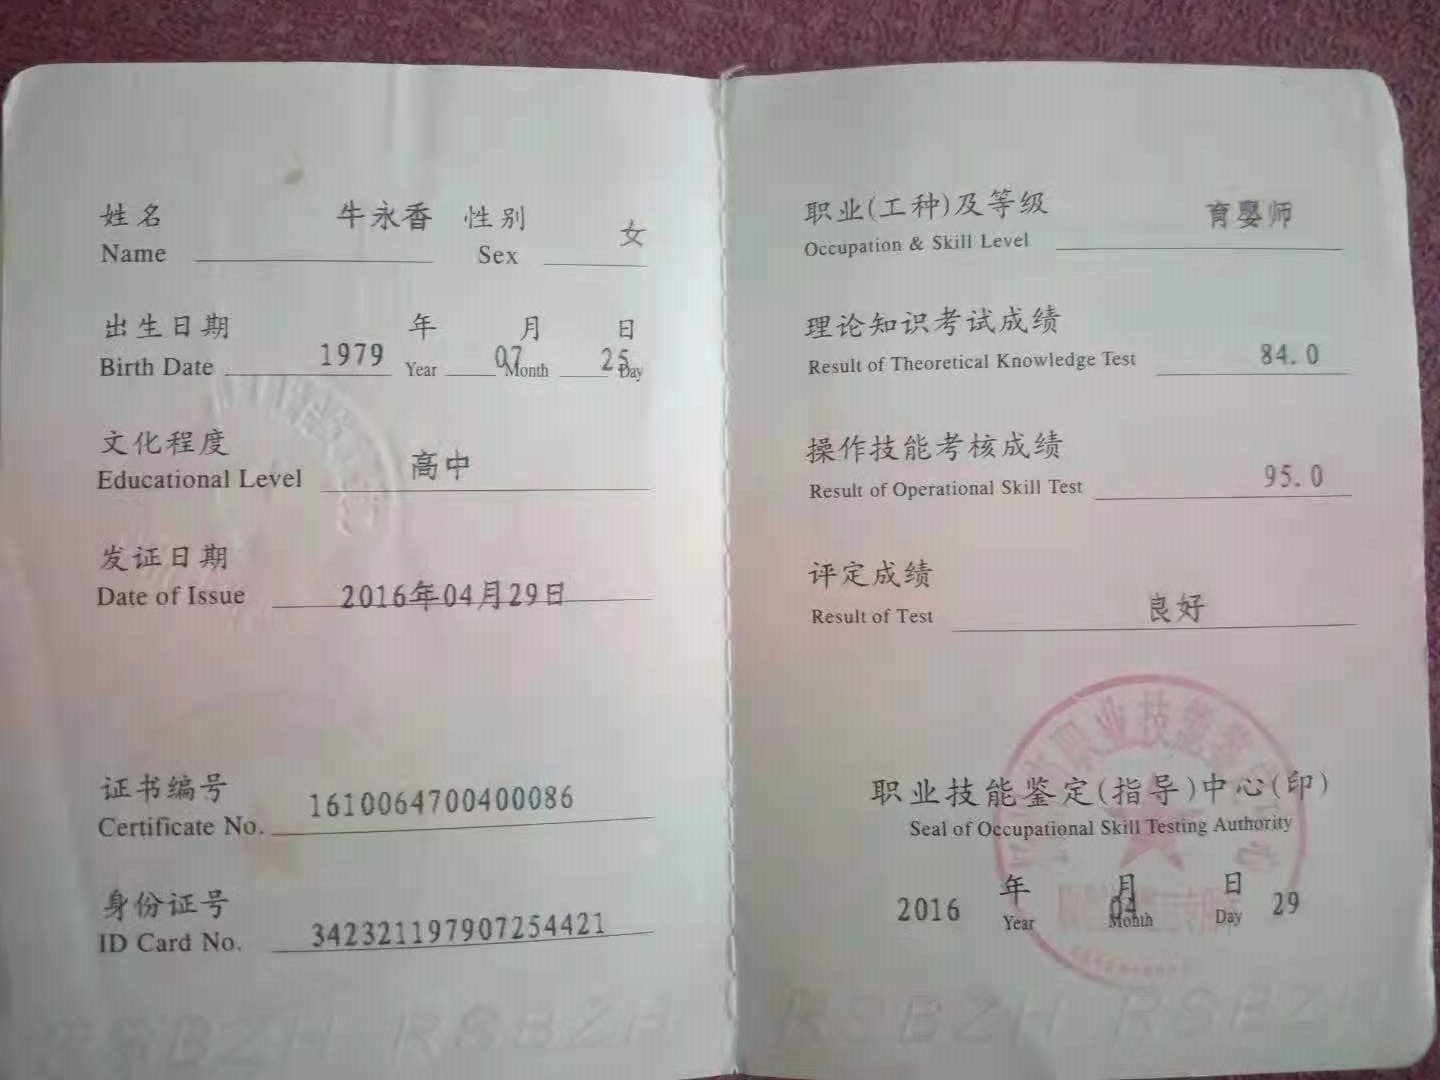 姓名 牛永香 性别 女
Name Sex
出生日期 年 月 日
Birth Date 1979 Year 07 Month 25 Day
文化程度
Educational Level 高中
发证日期
Date of Issue 2016年04月29日
证书编号
Certificate No. 1610064700400086
身份证号
ID Card No. 342321197907254421
RSBZH RSBZH
职业(工种)及等级 育婴师
Occupation & Skill Level
理论知识考试成绩
Result of Theoretical Knowledge Test 84.0
操作技能考核成绩
Result of Operational Skill Test 95.0
评定成绩
Result of Test 良好
职业技能鉴
职业技能鉴定(指导)中心(印)
Seal of Occupational Skill Testing Authority
年 月 日
2016 Year 04 Month Day 29
RSBZH RSBZH